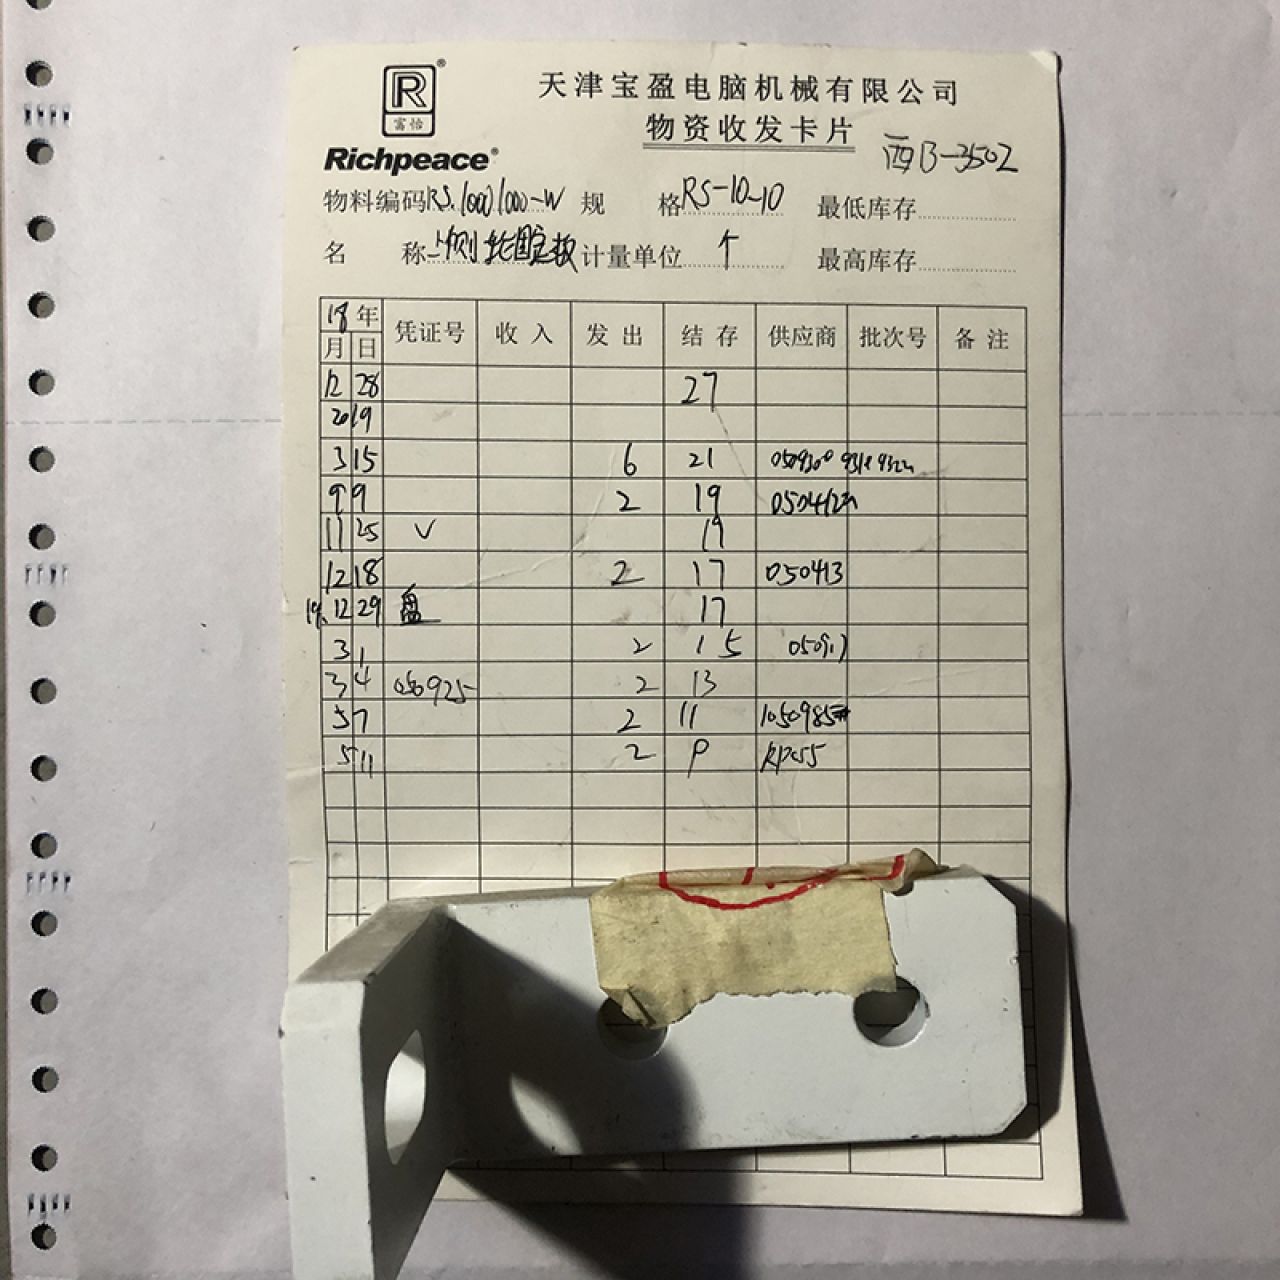 R®
富怡
Richpeace®
天津宝盈电脑机械有限公司
物资收发卡片
西B-3502
物料编码 RS.10001000-W 规格 RS-10-10 最低库存
名称 计量单位 个 最高库存
18年 凭证号 收入 发出 结存 供应商 批次号 备注
月 日
12 28 27
2019
3 15 6 21
9 9 2 19
11 25 V 19
12 18 2 17 050413
19. 12 29 盘 17
3 1 2 15 050917
3 4 050925 2 13
5 7 2 11 1050985#
5 11 2 9